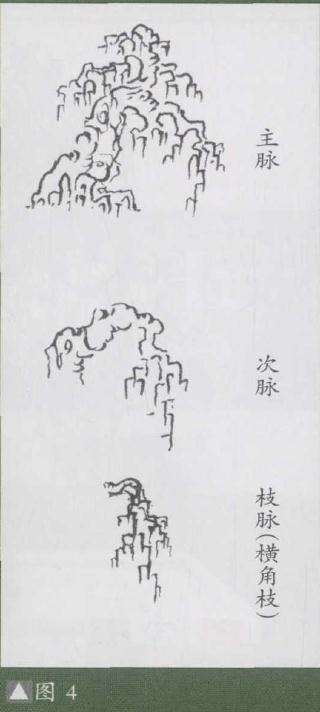 主脉
次脉
枝脉(横角枝)
▲图 4